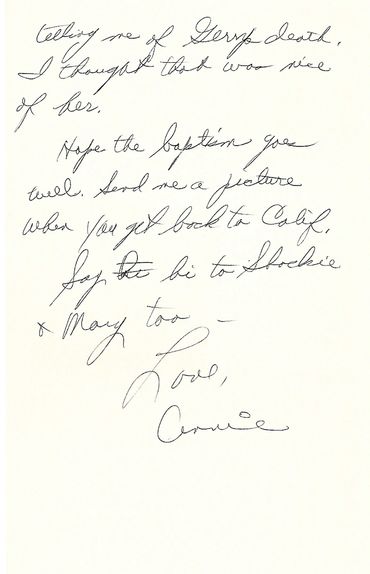 telling me of Gerry's death.
I thought that was nice
of her.
Hope the baptism goes
well. Send me a picture
when you get back to Calif.
Say hi to Shockie
& Mary too –
Love,
Annie